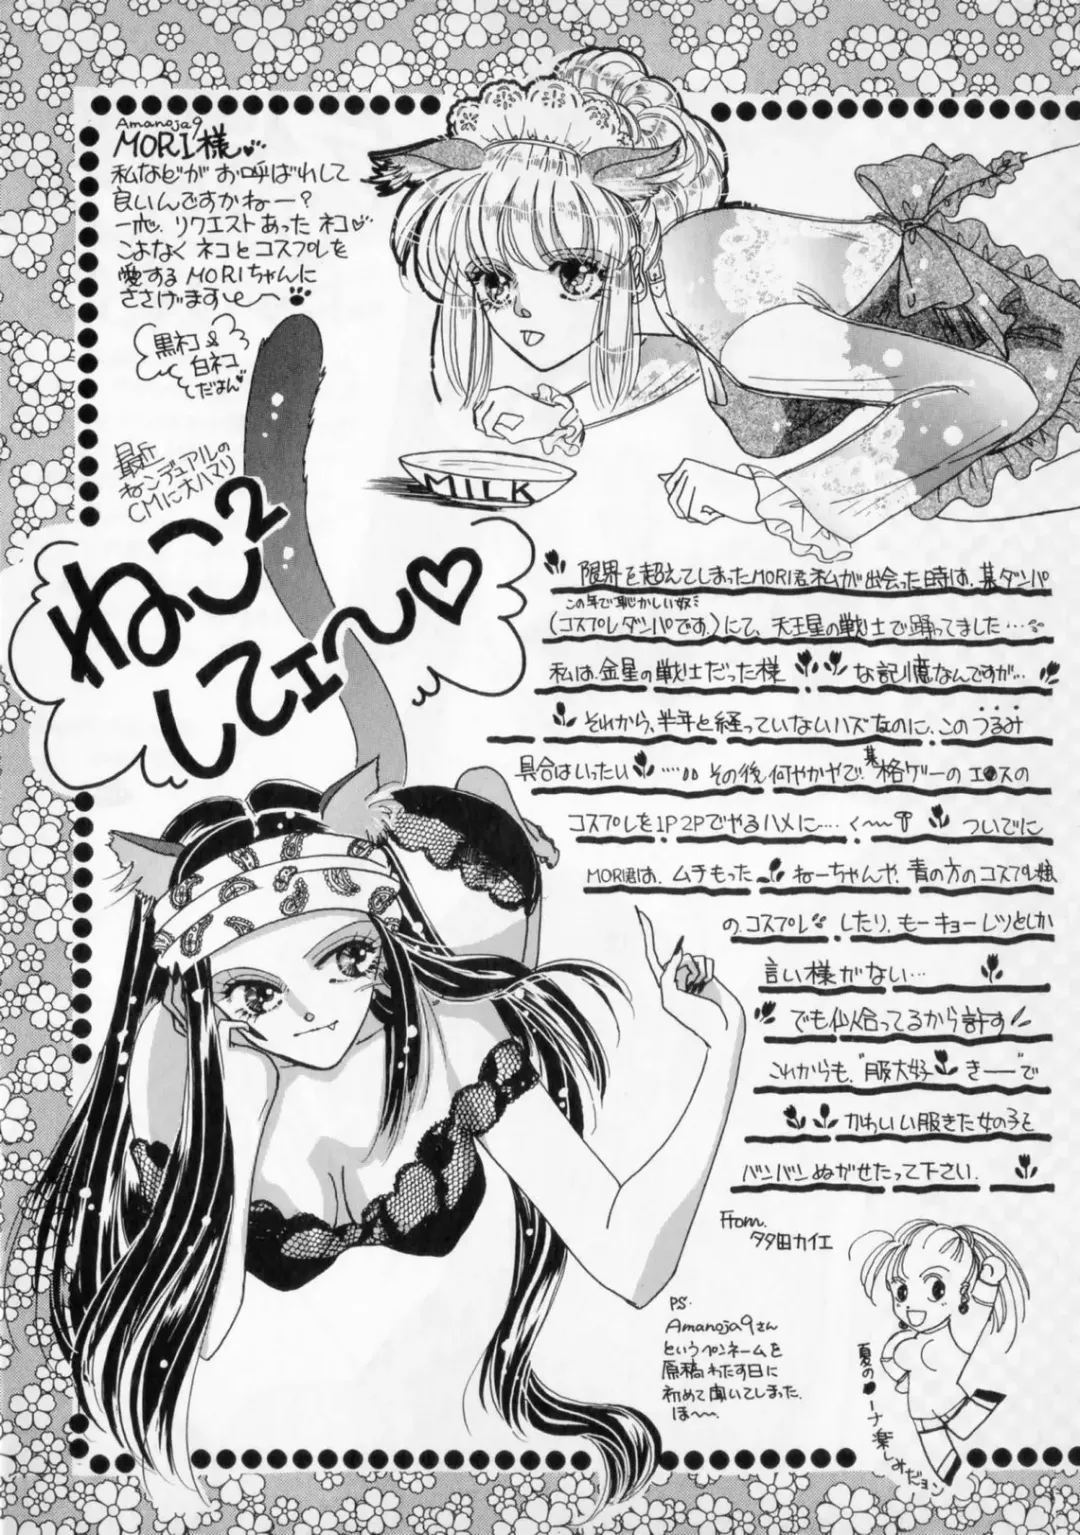 Amanoja9
MORI様♡
私などが お呼ばれして
良いんですかねー?
一応、リクエストあった ネコ♡
こよなく ネコとコスプレを
愛する MORIちゃんに
ささげます
黒ネコ &
白ネコ
だよん♡
最近
ねこンデュアルの
CMに大ハマリ
MILK
ねこ2
してエ〜♡
限界を超えてしまったMORI君と私が出会った時は、某ダンパ
この年で恥かしい奴ミ
(コスプレダンパです。)にて、天王星の戦士で踊ってました…
私は、金星の戦士だった様 な記憶なんですが…
それから、半年と経っていないハズなのに、このうるみ
具合はいったい ….. その後、何やかやで、某格ゲーの エ●スの
コスプレを1P2Pでやるハメに…. く〜 ついでに
MORI君は、ムチもった ねーちゃんや、青の方のコスプレ娘
の、コスプレ したり、もーキョーレツとしか
言い様がない…
でも似合ってるから許す
これからも、"服大好 きーーで
かわいい服きた女の子を
バンバンぬがせたって下さい.
From.
タタ田カイエ
PS.
Amanoja9さん
というペンネームを
原稿わたす日に
初めて聞いてしまった.
ほ〜.
夏の●ーナ楽しみだョン